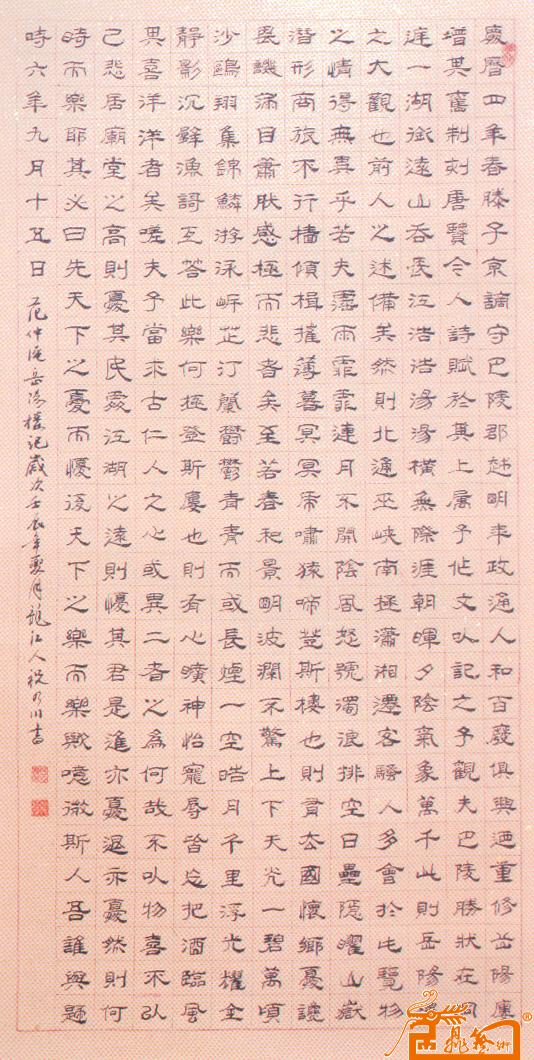 慶曆四年春滕子京謫守巴陵郡越明年政通人和百廢俱興迺重修岳陽樓
增其舊制刻唐賢今人詩賦於其上屬予作文以記之予觀夫巴陵勝狀在洞
庭一湖銜遠山吞長江浩浩湯湯橫無際涯朝暉夕陰氣象萬千此則岳陽樓
之大觀也前人之述備矣然則北通巫峽南極瀟湘遷客騷人多會於此覽物
之情得無異乎若夫霪雨霏霏連月不開陰風怒號濁浪排空日星隱曜山嶽
潛形商旅不行檣傾楫摧薄暮冥冥虎嘯猿啼登斯樓也則有去國懷鄉憂讒
畏譏滿目蕭然感極而悲者矣至若春和景明波瀾不驚上下天光一碧萬頃
沙鷗翔集錦鱗游泳岸芷汀蘭鬱鬱青青而或長煙一空皓月千里浮光耀金
靜影沉璧漁謌互答此樂何極登斯樓也則有心曠神怡寵辱皆忘把酒臨風
其喜洋洋者矣嗟夫予嘗求古仁人之心或異二者之為何哉不以物喜不以
己悲居廟堂之高則憂其民處江湖之遠則憂其君是進亦憂退亦憂然則何
時而樂耶其必曰先天下之憂而憂後天下之樂而樂歟噫微斯人吾誰與歸
時六年九月十五日 范仲淹岳陽樓記歲次壬辰年夏月龍江人祝乃川書